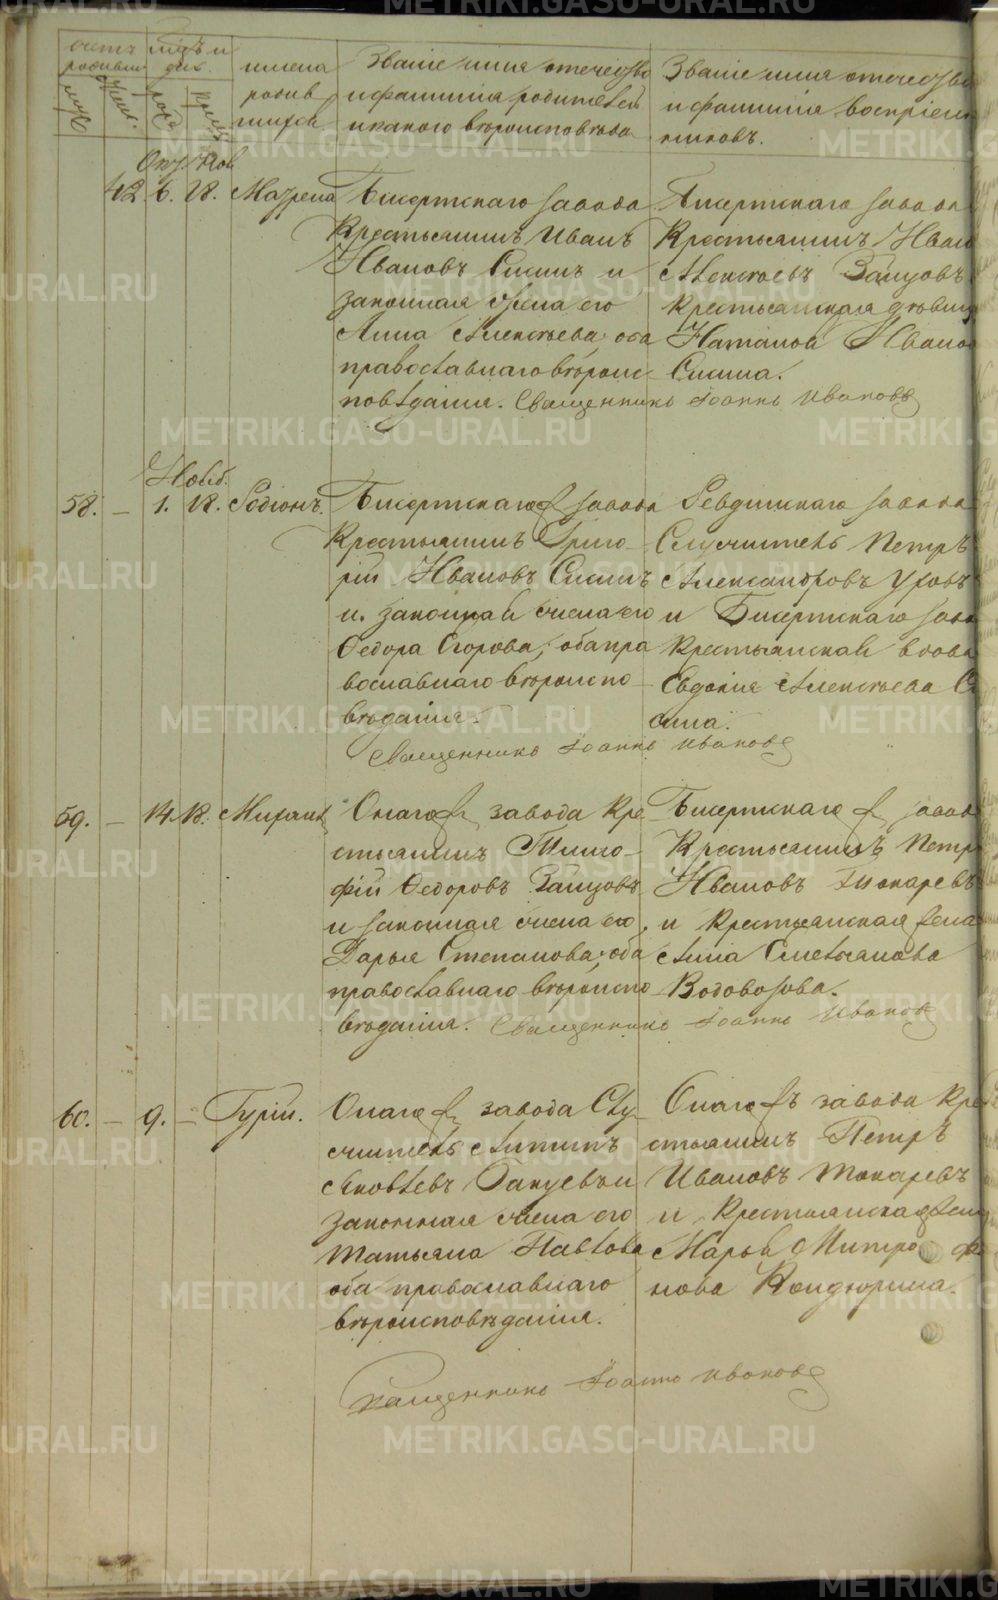 счетъ родившихъ
муж.
жен.
мѣсяцъ и день
рожд.
крещ.
имена родившихся
Званіе имя отечество
и фамилія родителей
и какого вѣроисповѣда
Званіе имя отечество
и фамилія воспріем
никовъ.
Окт. Нов.
42. 6. 18. Матрена
Бисертскаго завода
Крестьянинъ Иванъ
Ивановъ Сисинъ и
законная жена его
Анна Алексѣева, оба
православнаго вѣроис
повѣданія. Священникъ Іоаннъ Ивановъ
Бисертскаго завода
Крестьянинъ Иван
Алексѣевъ Зайцовъ
крестьянская дѣвица
Наталья Иванов
Сисина.
Нояб.
58. – 1. 18. Родіонъ.
Бисертскаго завода
Крестьянинъ Григо
рій Ивановъ Сисинъ
и законная жена его
Ѳедора Егорова, оба пра
вославнаго вѣроиспо
вѣданія.
Священникъ Іоаннъ Ивановъ
Ревдинскаго завода
Служитель Петръ
Александровъ Уховъ
и Бисертскаго заво
Крестьянская вдова
Евдокія Алексѣева Си
сина.
59. – 14. 18. Михаилъ
Онаго завода Кре
стьянинъ Тимо
фій Ѳедоровъ Зайцовъ
и законная жена его,
Дарья Степанова, оба
православнаго вѣроиспо
вѣданія. Священникъ Іоаннъ Ивановъ
Бисертскаго завод
Крестьянинъ Петр
Ивановъ Токаревъ
и Крестьянская жена
Анна Емельянова
Водовозова.
60. – 9. – Гурій.
Онаго завода Слу
житель Антипъ
Яковлевъ
законная жена его
Татьяна Павлова
оба православнаго
вѣроисповѣданія.
Священникъ Іоаннъ Ивановъ
Онаго завода Кре
стьянинъ Петръ
Ивановъ Токаревъ
и Крестьянская жена
Марья Митрофа
нова Кондюрина.
METRIKI.GASO-URAL.RU